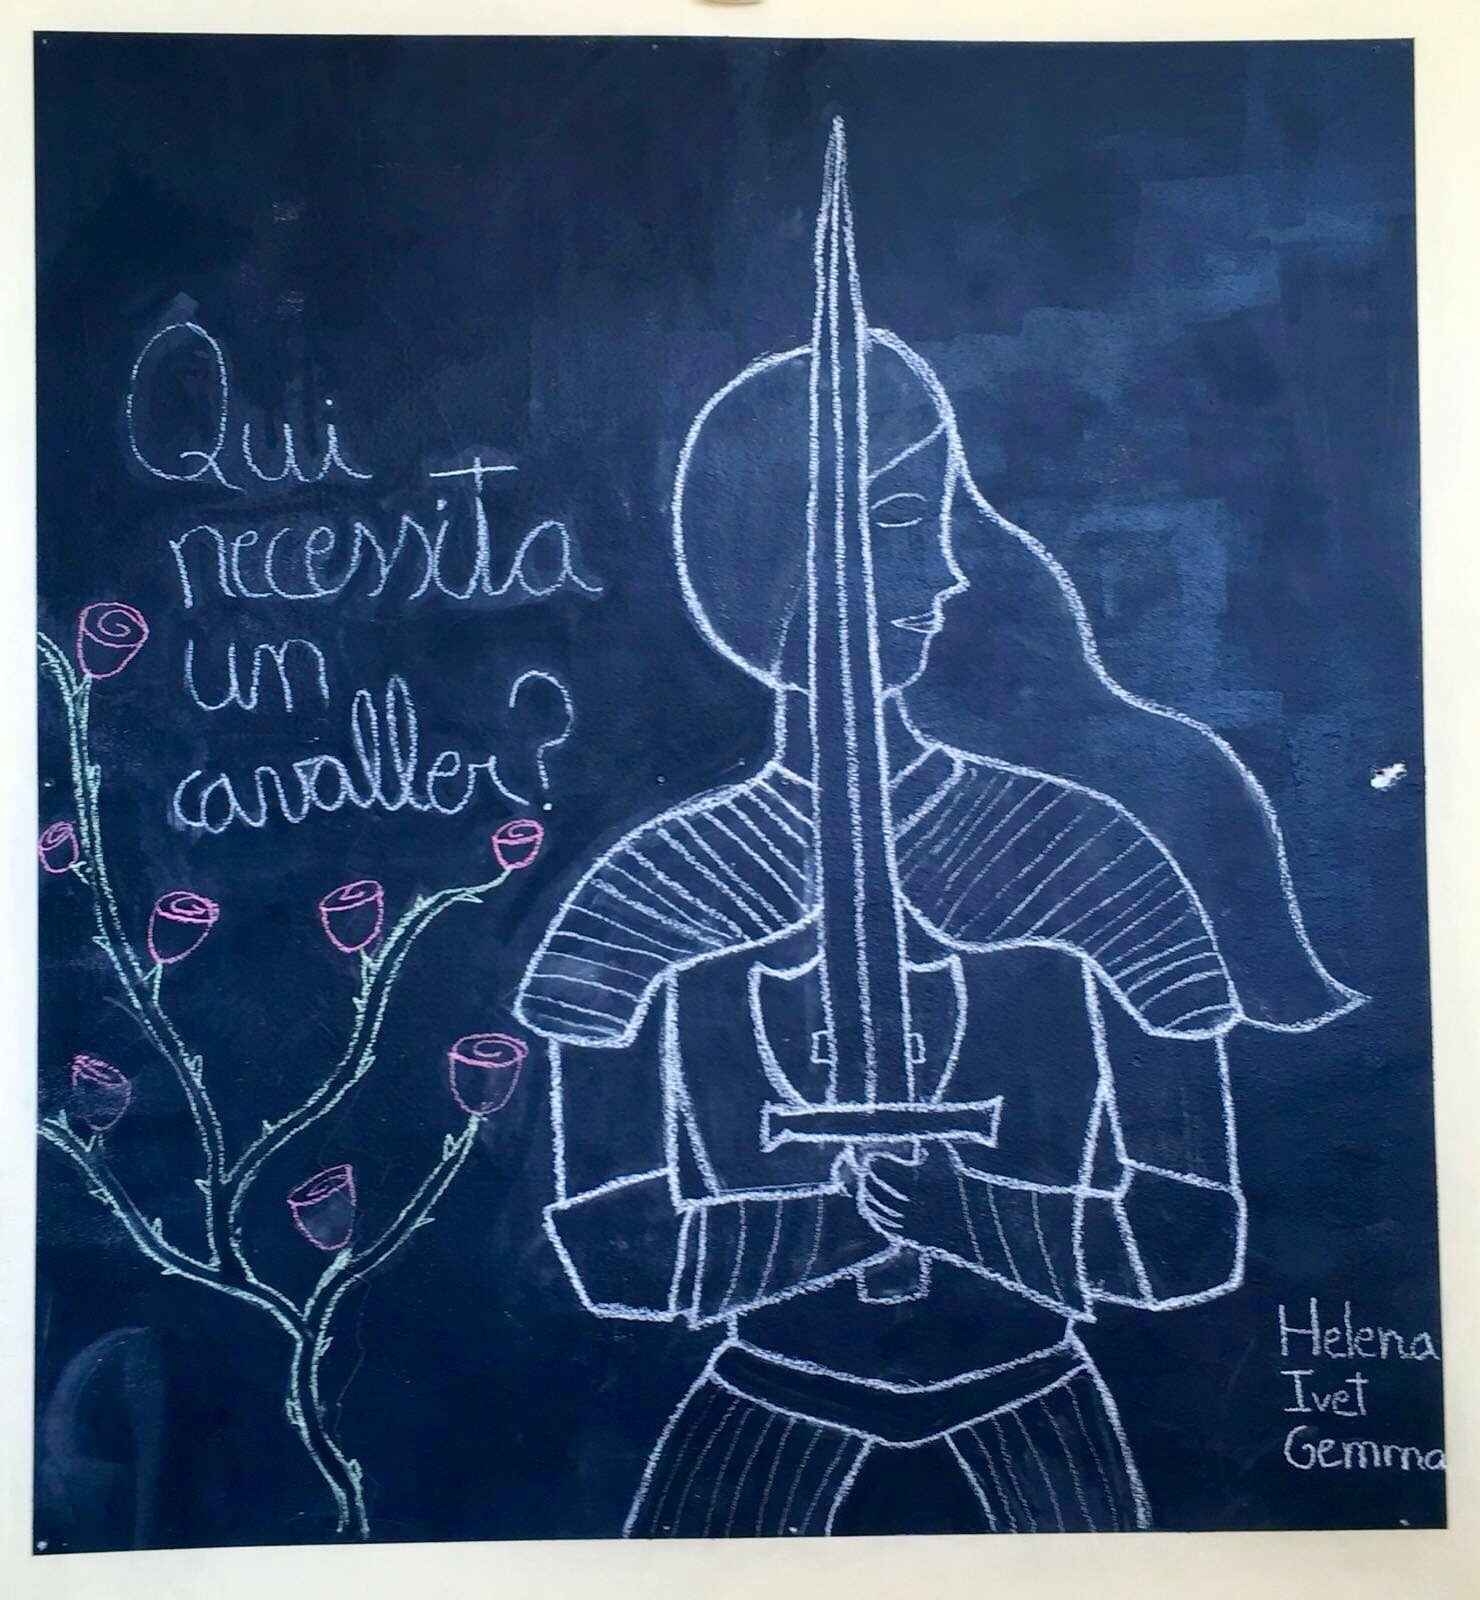 Qui
necessita
un
cavaller?
Helena
Ivet
Gemma